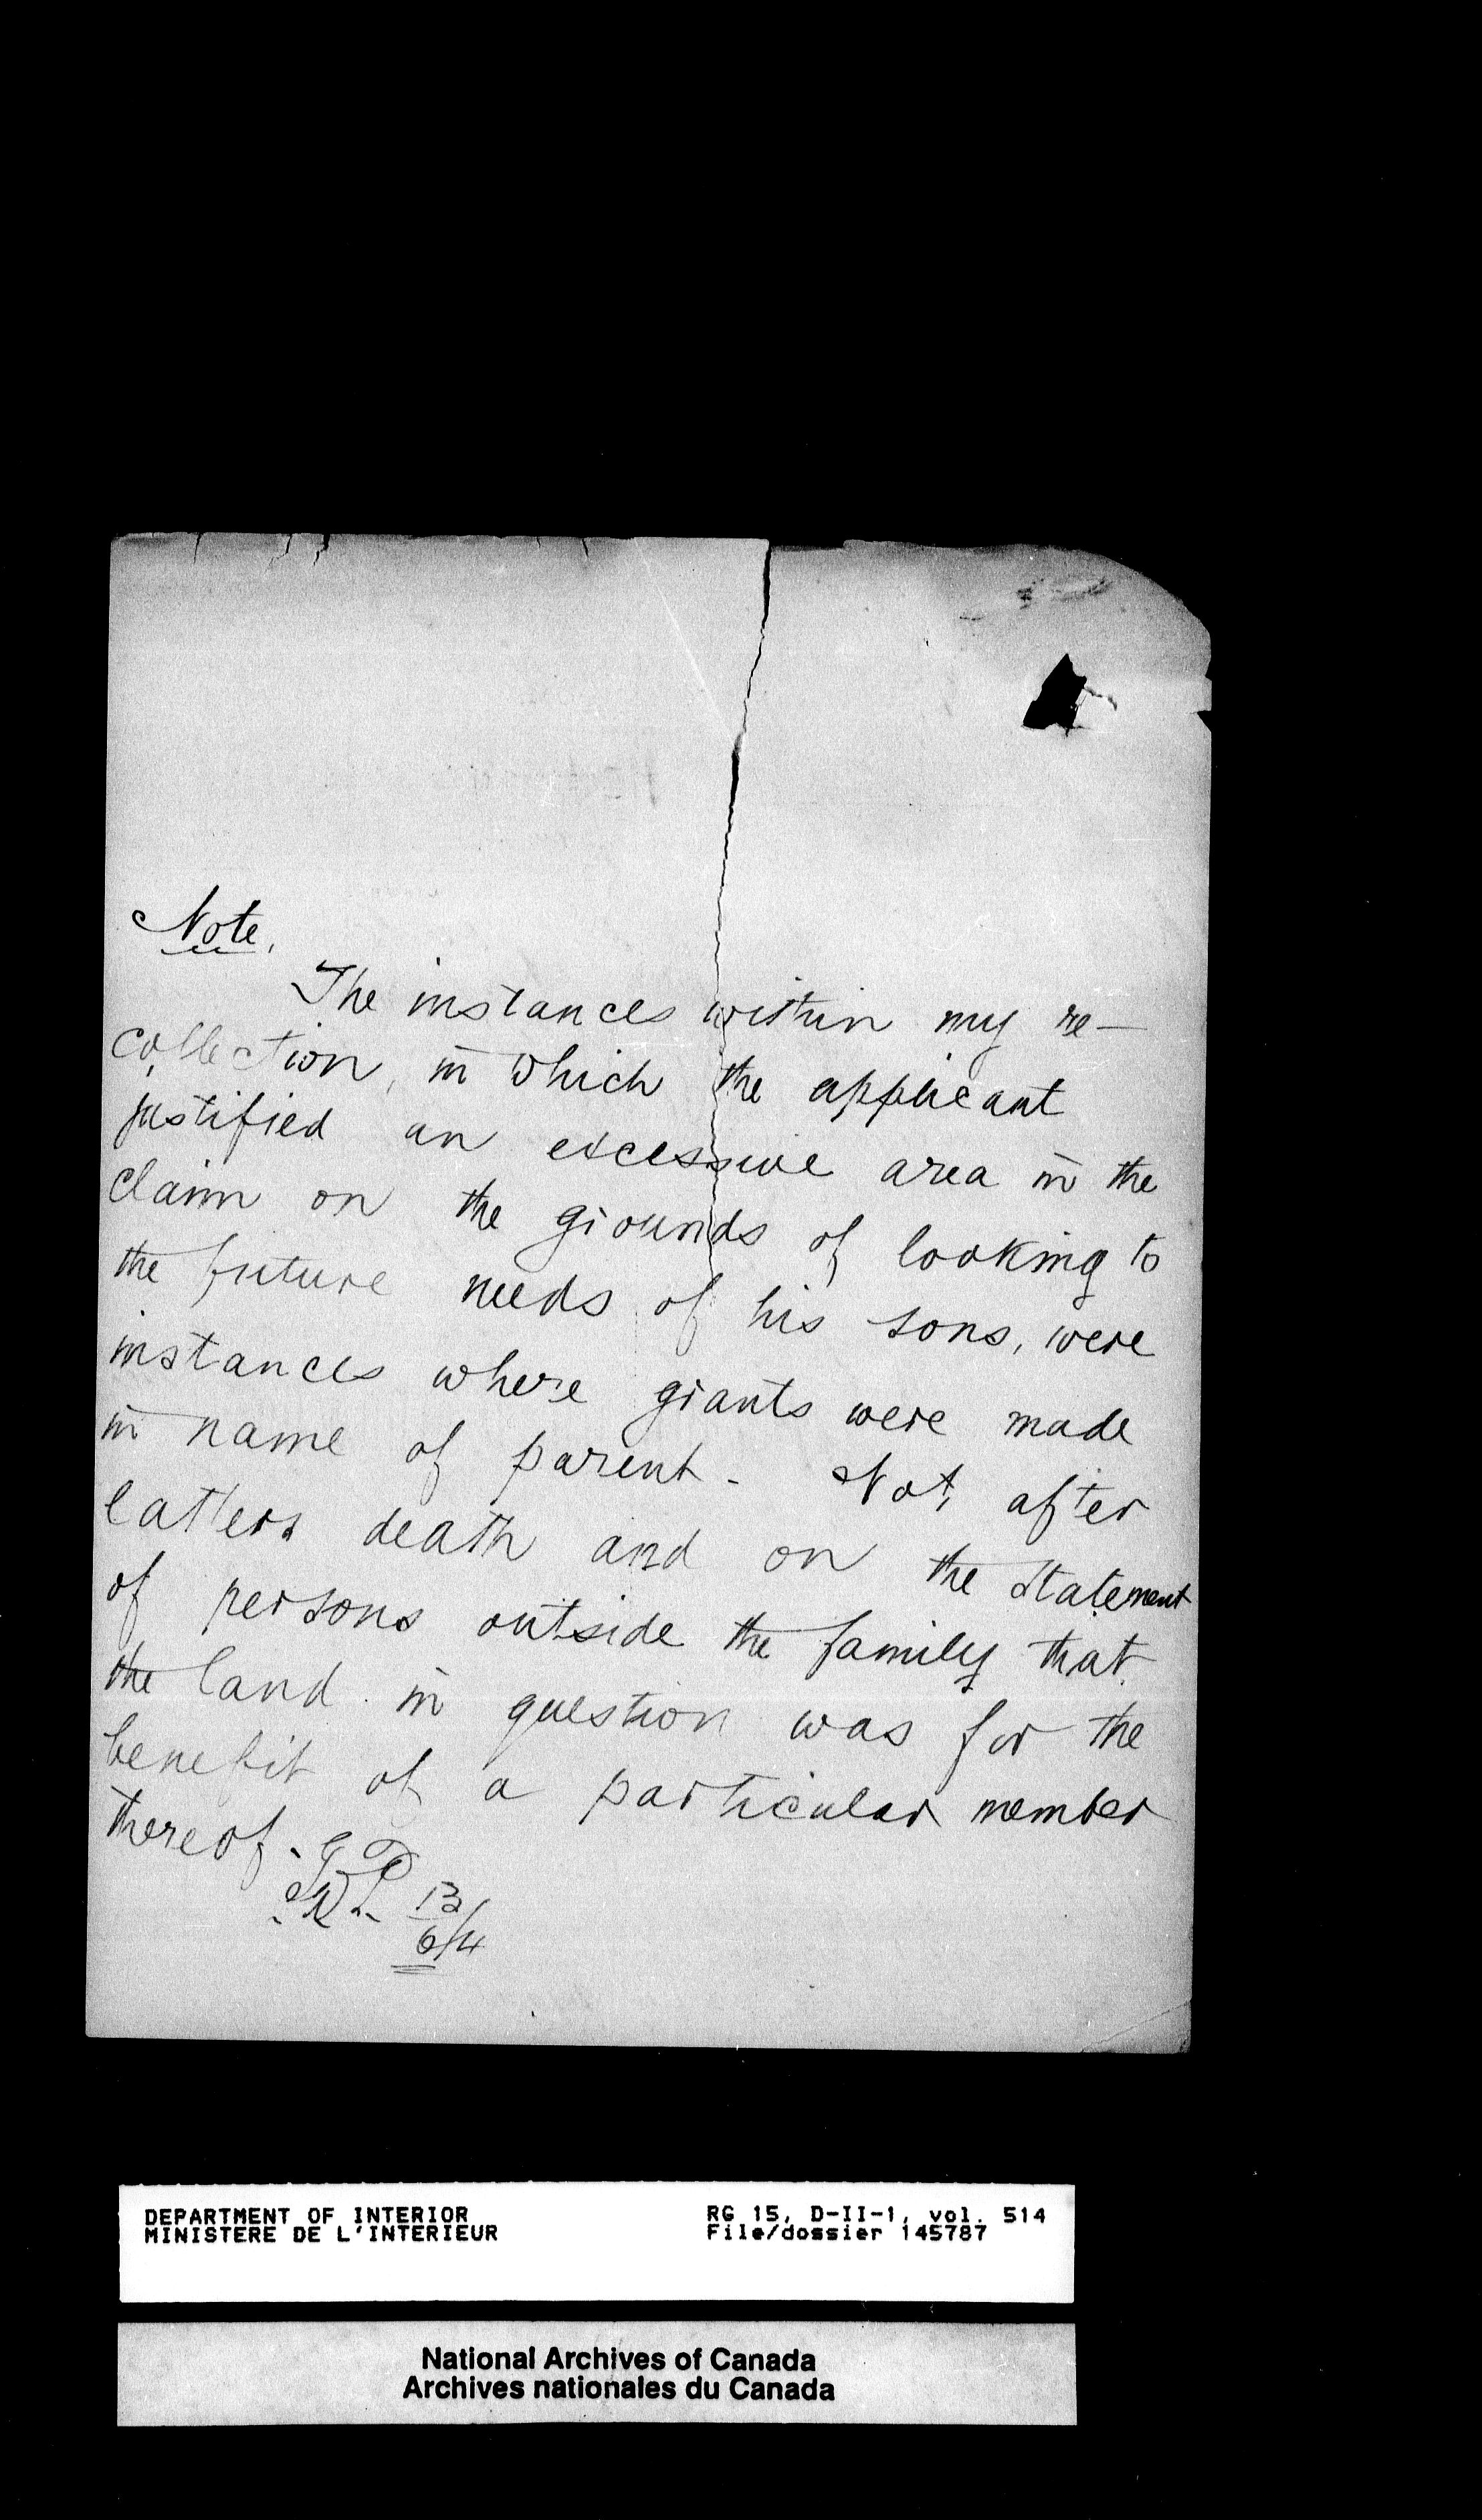 Note.
The instances within my re-
collection, in which the applicant
justified an excessive area in the
claim on the grounds of looking to
the future needs of his sons, were
instances where grants were made
in name of parent - Not, after
latters death and on the statement
of persons outside the family that
the land in question was for the
benefit of a particular member
thereof.
13
6/4
DEPARTMENT OF INTERIOR
MINISTERE DE L'INTERIEUR
RG 15, D-II-1, vol. 514
File/dossier 145787
National Archives of Canada
Archives nationales du Canada